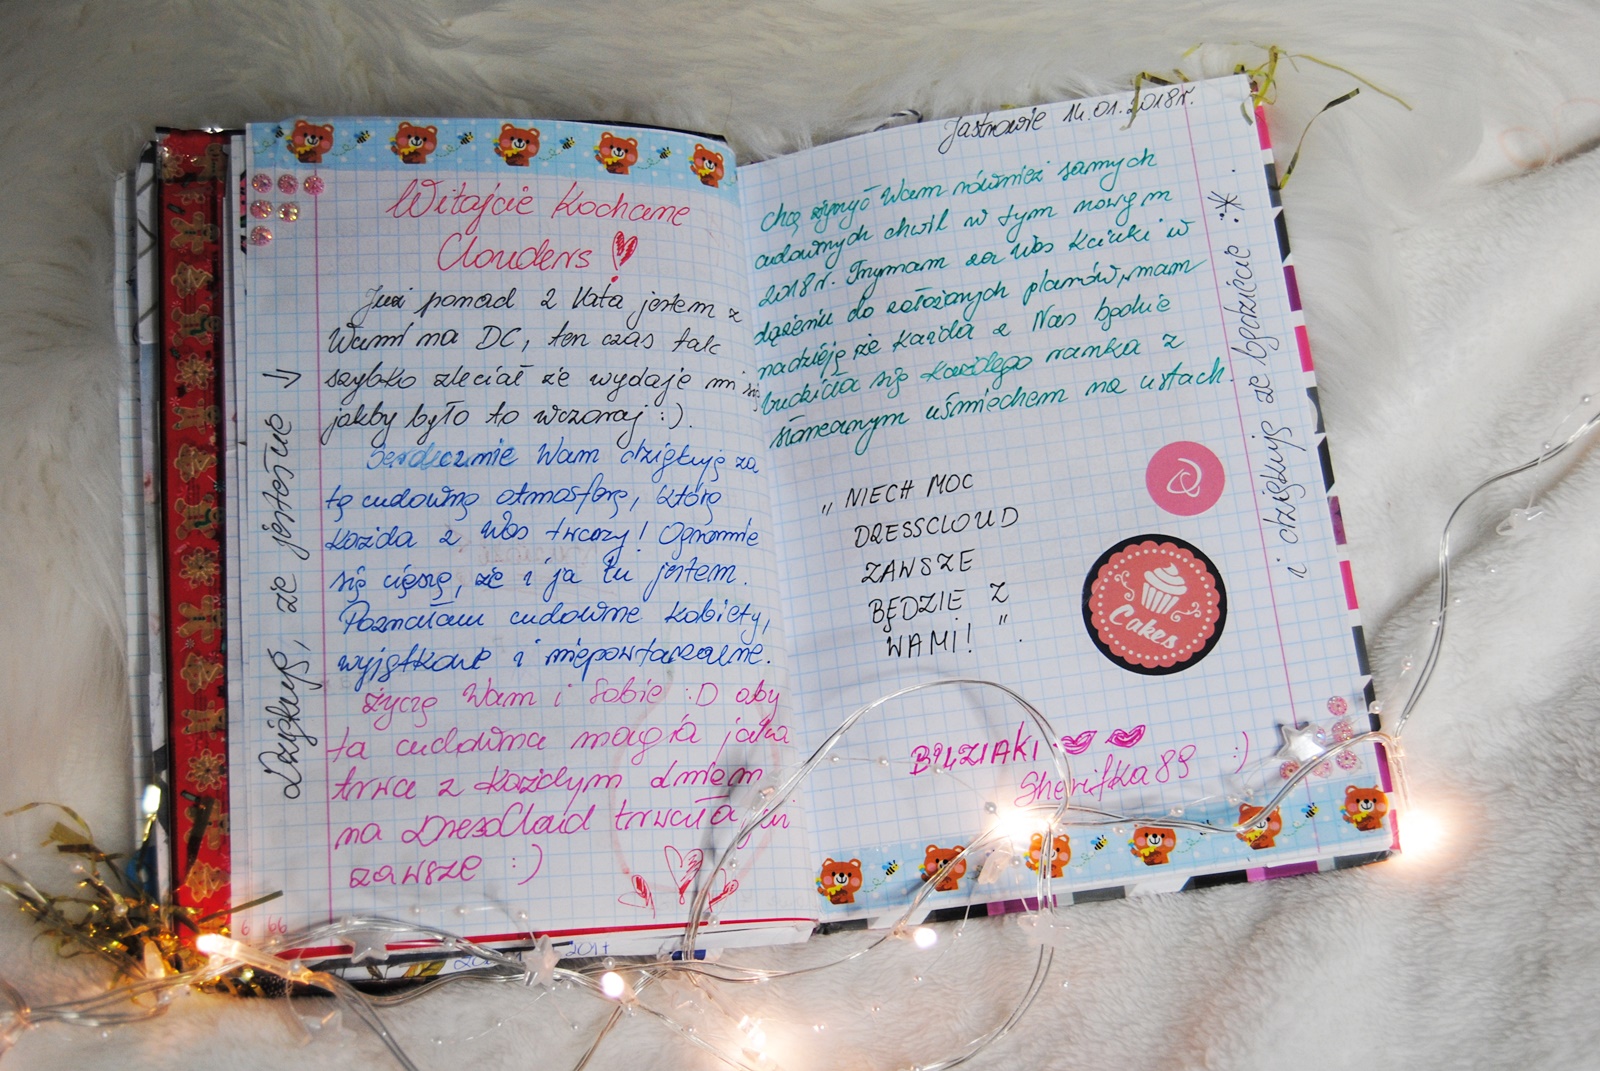 Witajcie Kochane
Clouders!
Już ponad 2 lata jestem z
Wami na DC, ten czas tak
szybko zleciał że wydaje mi się
jakby było to wczoraj :).
Serdecznie Wam dziękuję za
tę cudowną atmosferę, którą
każda z Was tworzy! Ogromnie
się cieszę, że i ja tu jestem.
Poznałam cudowne kobiety,
wyjątkowe i niepowtarzalne.
Życzę Wam i Sobie :D aby
ta cudowna magia jaka
trwa z każdym dniem
na DressCloud trwała
zawsze :)
Dziękuję, że jesteście
6 66
2017
Jastrowie 14.01.2018r.
Chcę życzyć Wam również samych
cudownych chwil w tym nowym
2018r. Trzymam za Was kciuki w
dążeniu do założonych planów, mam
nadzieję że każda z Nas będzie
budziła się każdego ranka z
słonecznym uśmiechem na ustach.
„ NIECH MOC
DRESSCLOUD
ZAWSZE
BĘDZIE Z
WAMI! ".
Cakes
BUZIAKI
Sherifka89 :)
i dziękuję że będziecie :*.